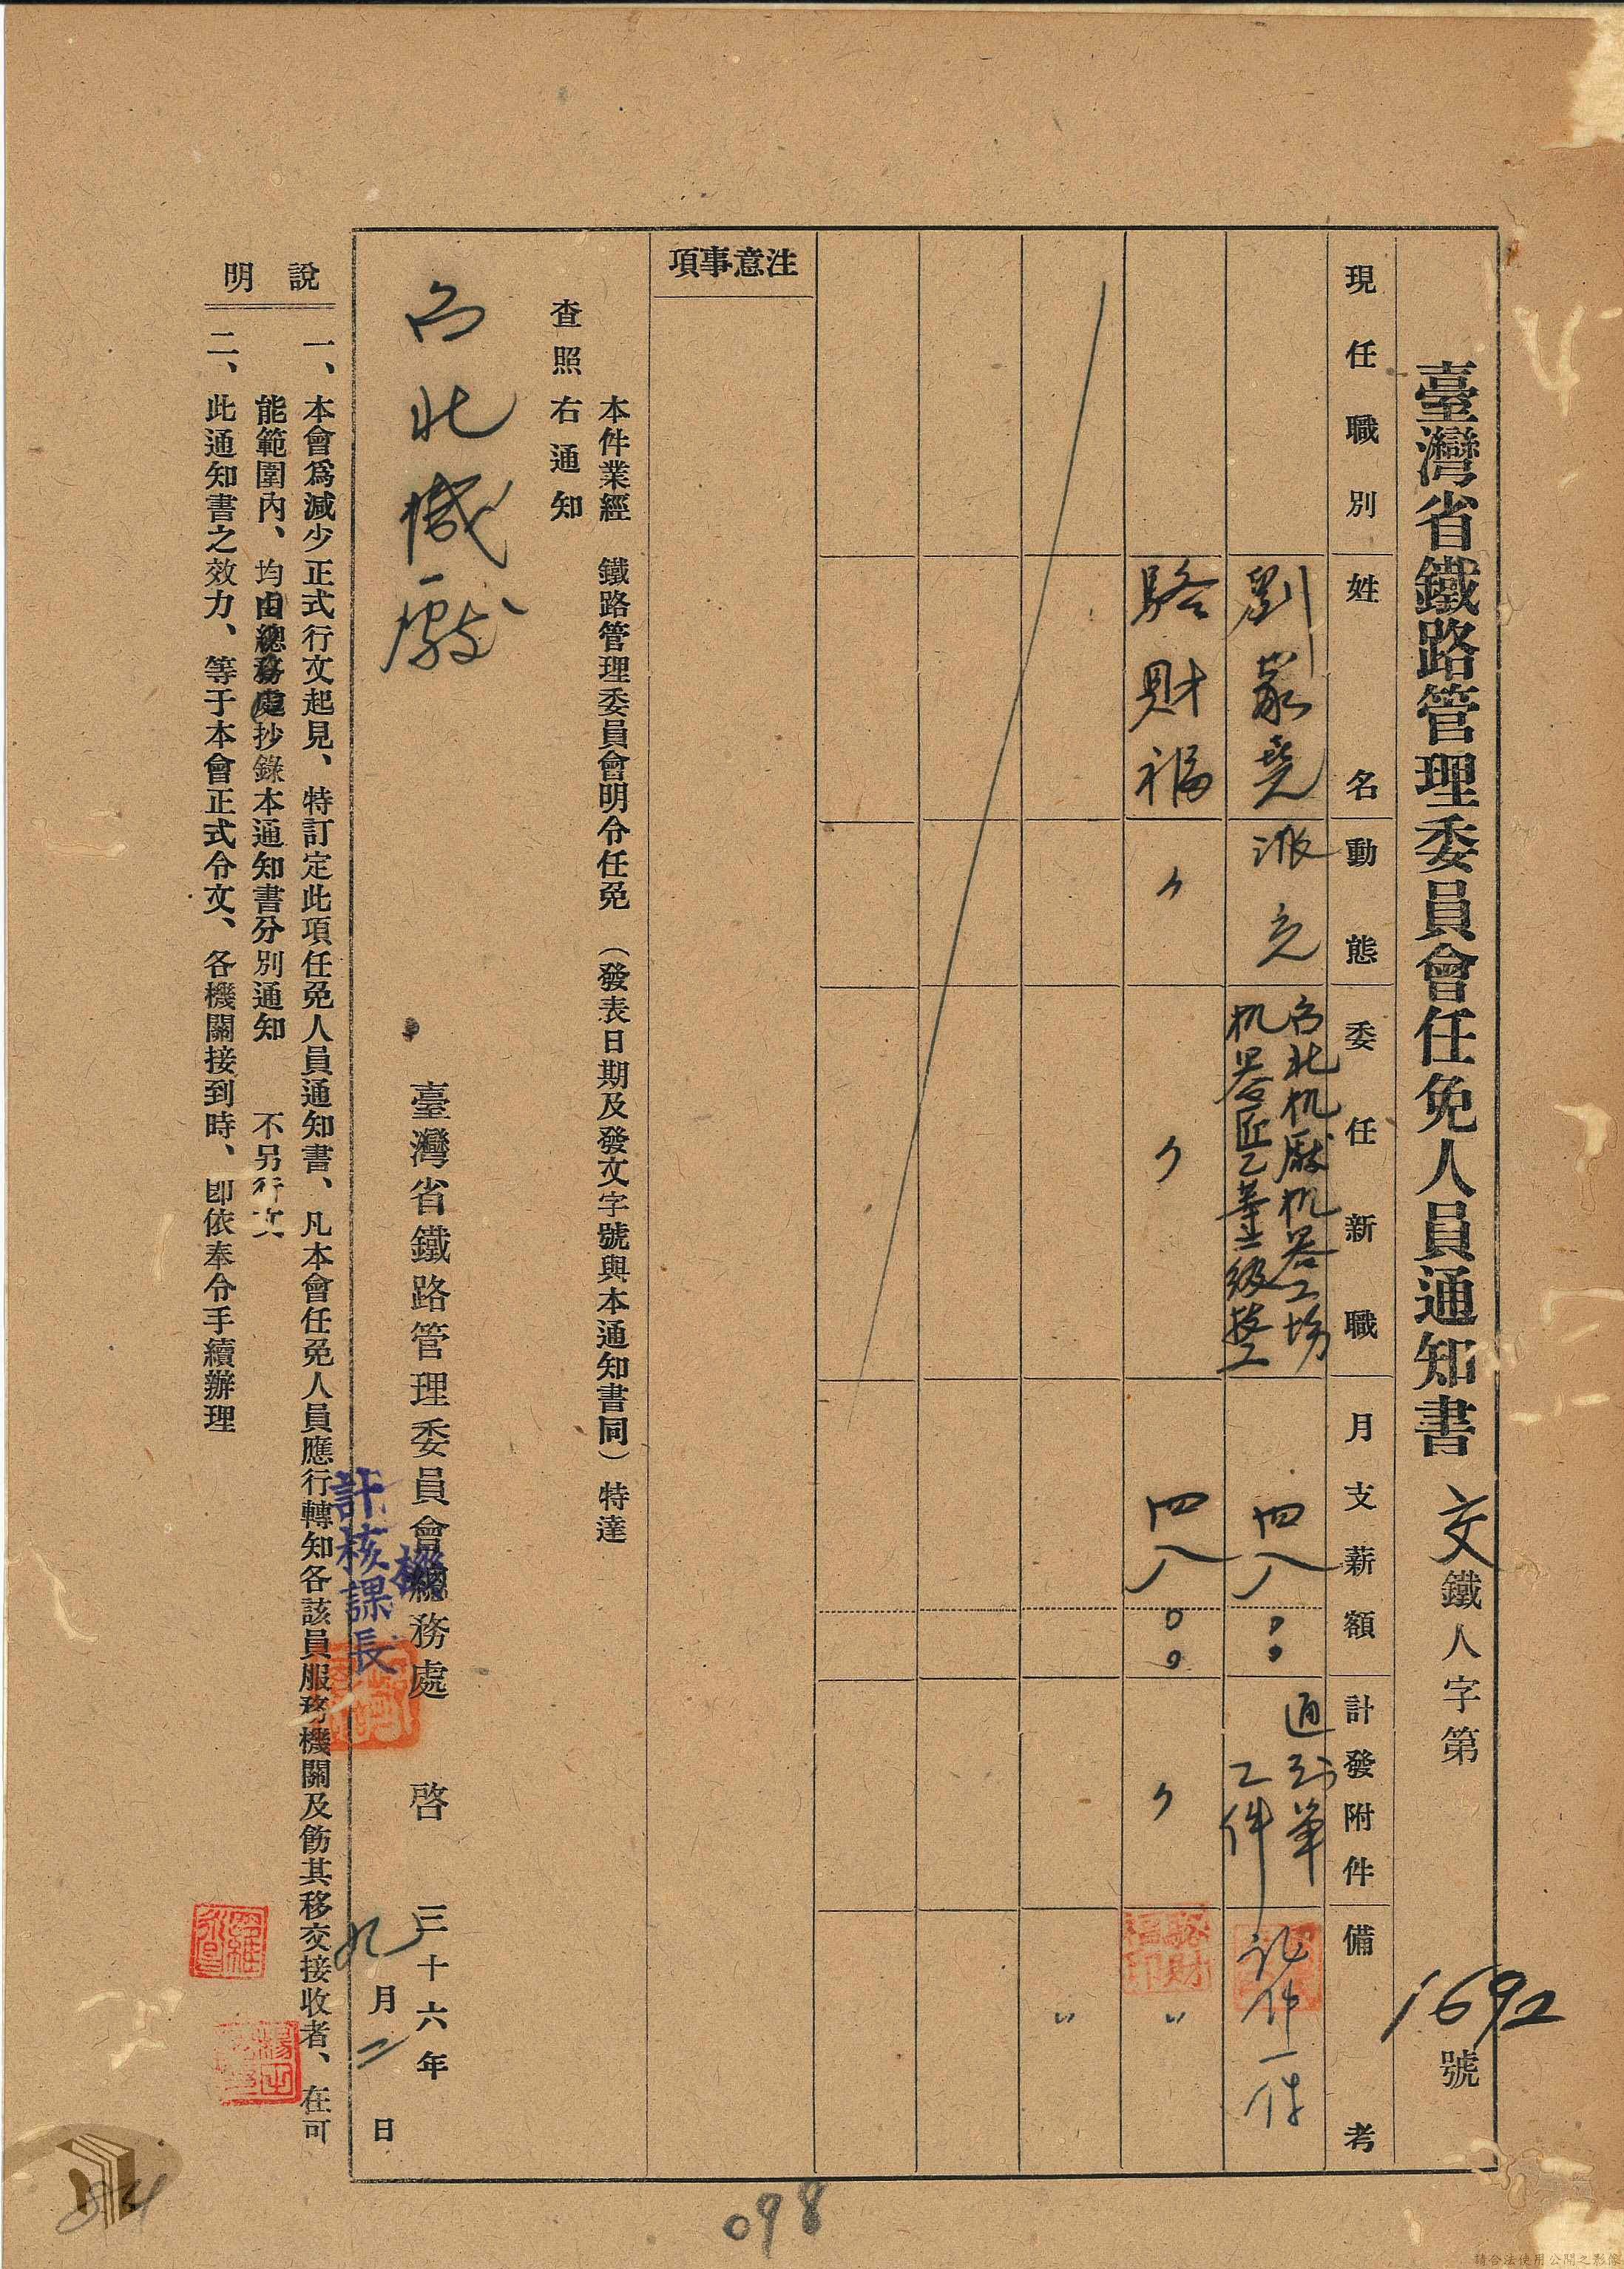 臺灣省鐵路管理委員會任免人員通知書 交鐵人字第1692號
現任職別 姓名 動態 委任新職 月支薪額 計發附件 備考
劉 堯 派充 台北机廠机器工場 四八 通知單
机器匠乙等 級技工 乙件
駱財福 〃 〃 四八〇〇 〃 〃
〃
注意事項
本件業經 鐵路管理委員會明令任免 (發表日期及發文字號與本通知書同) 特達
查照右通知
台北機廠
臺灣省鐵路管理委員會總務處 啓 三十六年
九月二日
機
計核課長
說明
一、本會爲減少正式行文起見、特訂定此項任免人員通知書、凡本會任免人員應行轉知各該員服務機關及飭其移交接收者、在可
能範圍內、均由總務處抄錄本通知書分別通知 不另行文
二、此通知書之效力、等于本會正式令文、各機關接到時、卽依奉令手續辦理
098
請合法使用公開之影像